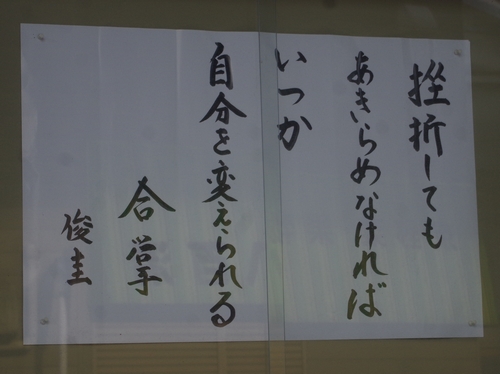 挫折しても
あきらめなければ
いつか
自分を変えられる
合掌
俊圭